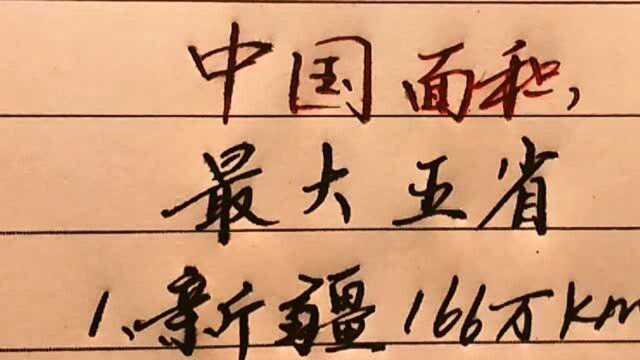 中国面积,
最大五省
1、新疆166万KM